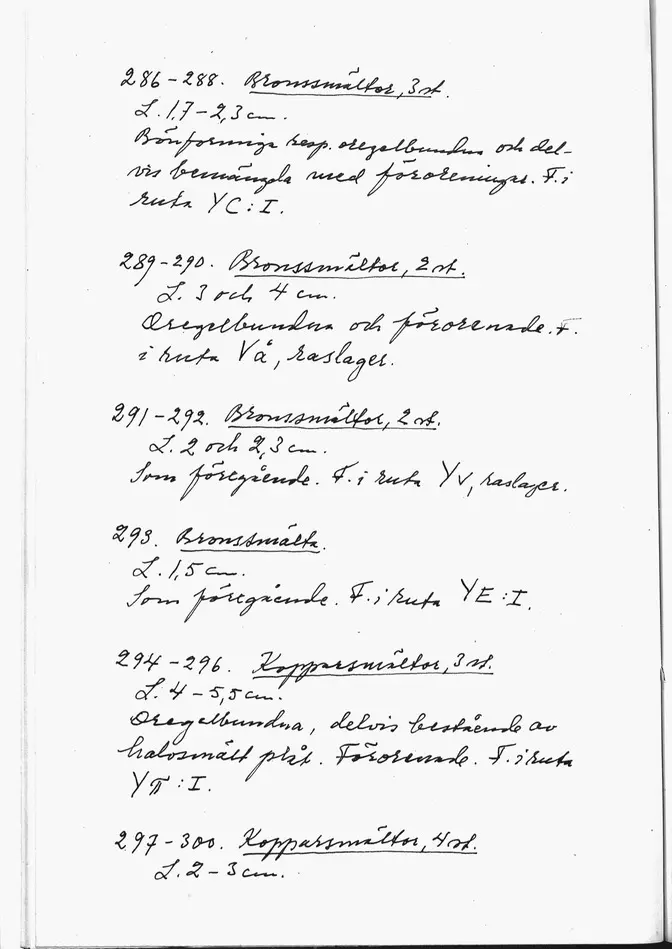 286-288. Bronssmältor, 3 st.
L. 1,7-2,3 cm.
Bönformiga resp. oregelbundna och del-
vis bemängda med föroreningar. F. i
ruta YC:I.
289-290. Bronssmältor, 2 st.
L. 3 och 4 cm.
Oregelbundna och förorenade. F.
i ruta Vå, raslager.
291-292. Bronssmältor, 2 st.
L. 2 och 2,3 cm.
Som föregående. F. i ruta YV, raslager.
293. Bronssmälta.
L. 1,5 cm.
Som föregående. F. i ruta YE:I.
294-296. Kopparsmältor, 3 st.
L. 4-5,5 cm.
Oregelbundna, delvis bestående av
halvsmält plåt. Förorenade. F. i ruta
Yπ:I.
297-300. Kopparsmältor, 4 st.
L. 2-3 cm.